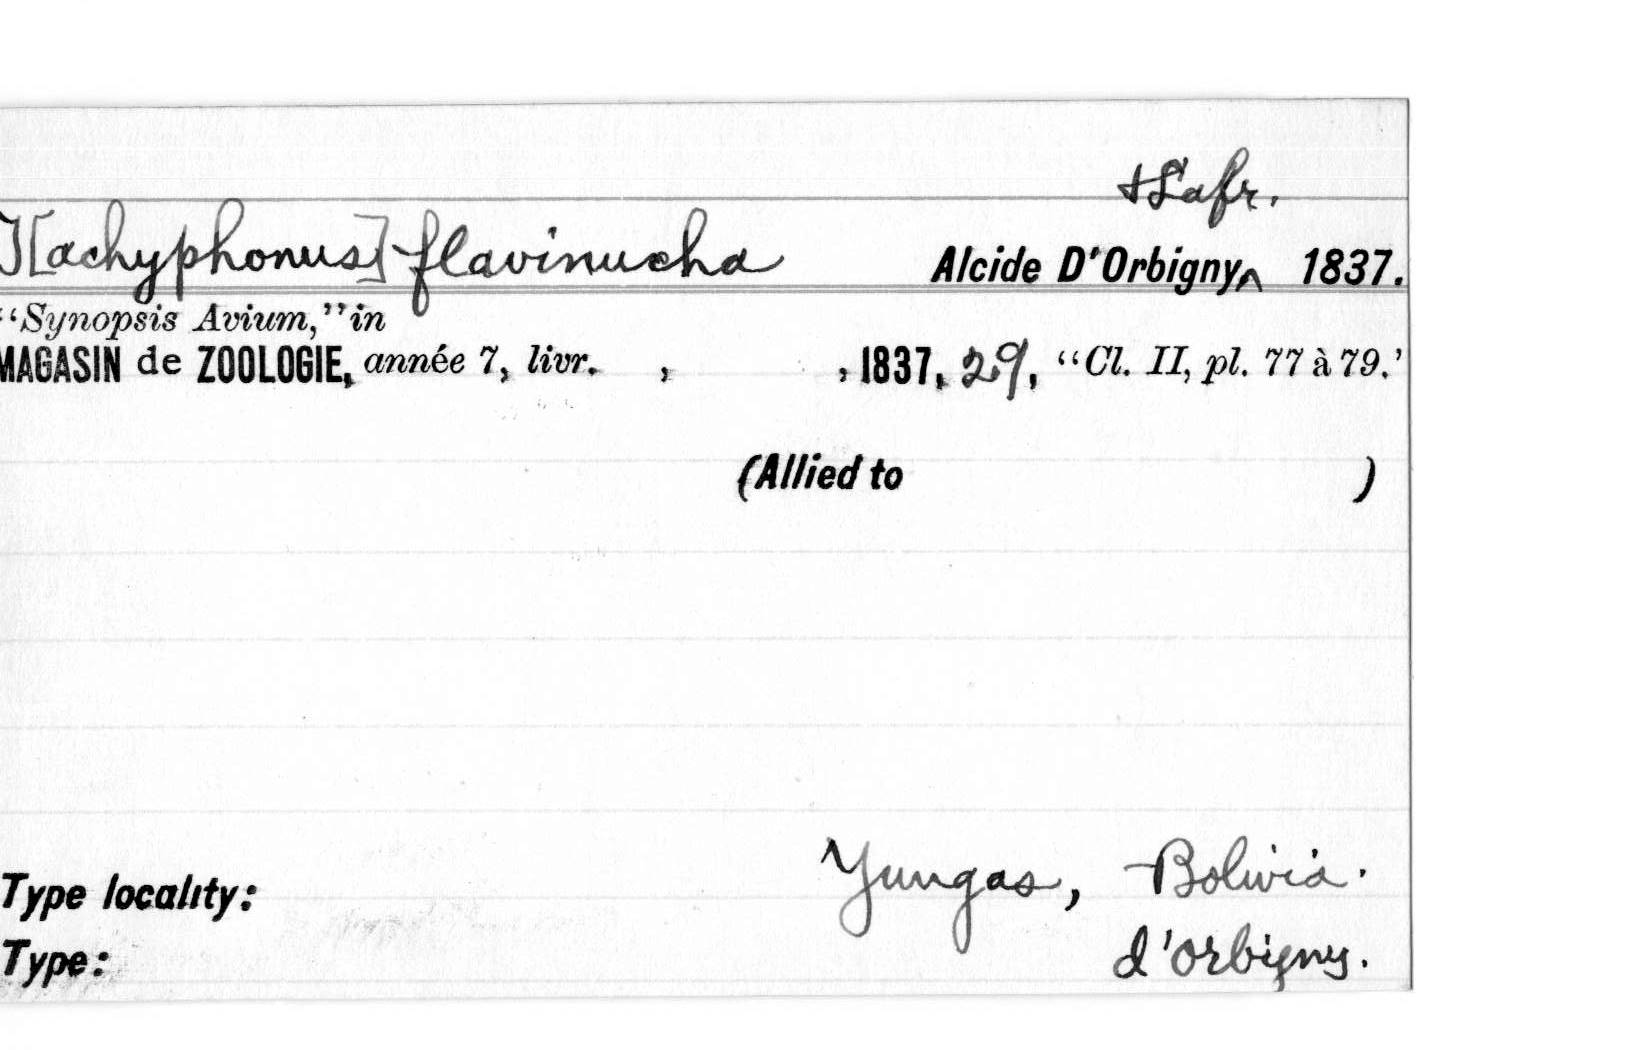 +Lafr.
T[achyphonus] flavinucha Alcide D'Orbigny^ 1837.
"Synopsis Avium," in
MAGASIN de ZOOLOGIE, année 7, livr. , , 1837, 29, "Cl. II, pl. 77 à 79.'
(Allied to )
Type locality: Yungas, Bolivia.
Type: d'Orbigny.